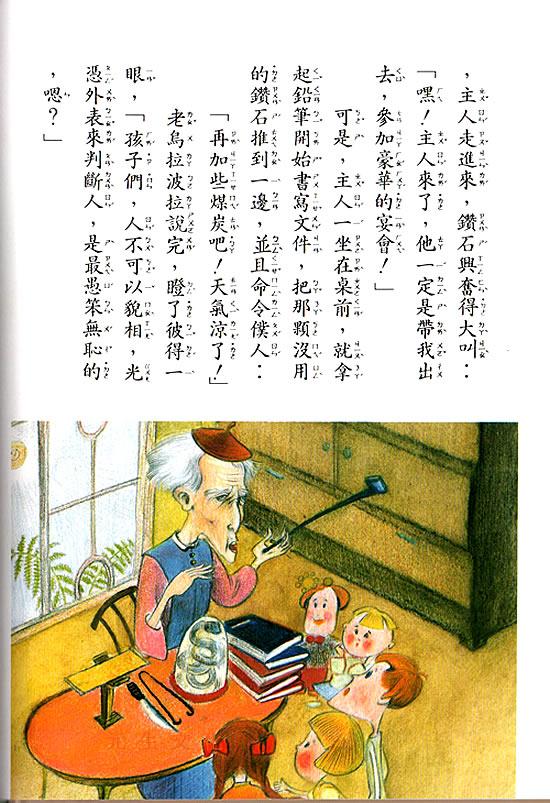 ，主人走進來，鑽石興奮得大叫：
「嘿！主人來了，他一定是帶我出
去，參加豪華的宴會！」
可是，主人一坐在桌前，就拿
起鉛筆開始書寫文件，把那顆沒用
的鑽石推到一邊，並且命令僕人：
「再加些煤炭吧！天氣涼了！」
老烏拉波拉說完，瞪了彼得一
眼，「孩子們，人不可以貌相，光
憑外表來判斷人，是最愚笨無恥的
，嗯？」